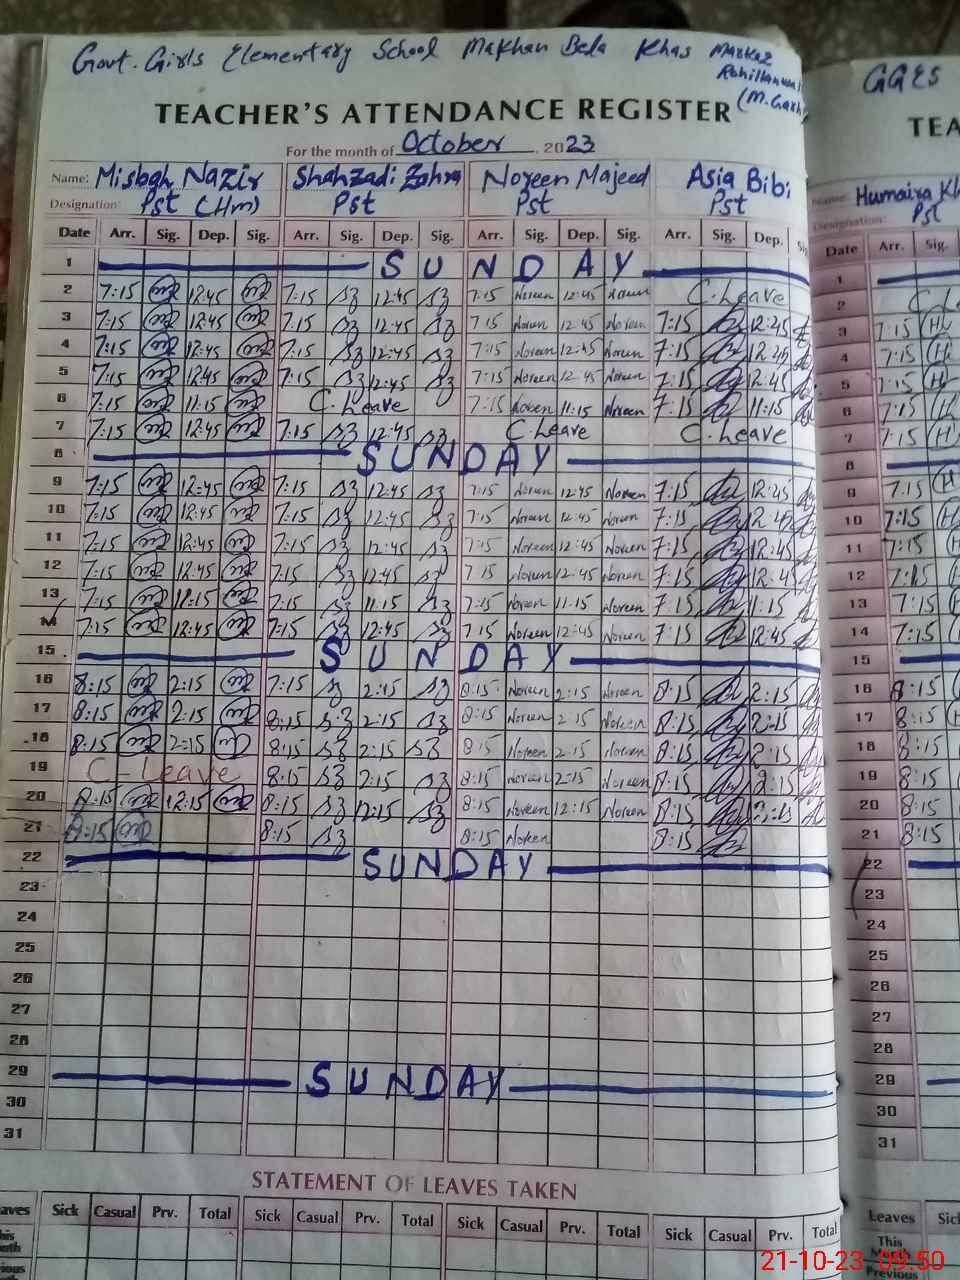 Govt. Girls Elementary School Makhan Bela Khas Markaz
GGES
TEACHER'S ATTENDANCE REGISTER
TEA
For the month of October, 2023
Name: Misbah Nazir Shahzadi Zahra Noreen Majeed Asia Bibi
Name: Humaira
Designation: Pst (Hm) Pst Pst Pst
Designation: Pst
Date Arr. Sig. Dep. Sig. Arr. Sig. Dep. Sig. Arr. Sig. Dep. Sig. Arr. Sig. Dep. Date Arr. Sig.
1 SUNDAY 1
2 7:15 12:45 7:15 12:45 7:15 Noreen 12:45 Noreen C.Leave 2
3 7:15 12:45 7:15 12:45 7:15 Noreen 12:45 Noreen 7:15 12:45 3 7:15
4 7:15 12:45 7:15 12:45 7:15 Noreen 12:45 Noreen 7:15 12:45 4 7:15
5 7:15 12:45 7:15 12:45 7:15 Noreen 12:45 Noreen 7:15 12:45 5 7:15
6 7:15 11:15 C.Leave 7:15 Noreen 11:15 Noreen 7:15 11:15 6 7:15
7 7:15 12:45 7:15 12:45 C.Leave C.Leave 7 7:15
8 SUNDAY 8
9 7:15 12:45 7:15 12:45 7:15 Noreen 12:45 Noreen 7:15 12:45 9 7:15
10 7:15 12:45 7:15 12:45 7:15 Noreen 12:45 Noreen 7:15 12:45 10 7:15
11 7:15 12:45 7:15 12:45 7:15 Noreen 12:45 Noreen 7:15 12:45 11 7:15
12 7:15 12:45 7:15 12:45 7:15 Noreen 12:45 Noreen 7:15 12:45 12 7:15
13 7:15 11:15 7:15 11:15 7:15 Noreen 11:15 Noreen 7:15 11:15 13 7:15
14 7:15 12:45 7:15 12:45 7:15 Noreen 12:45 Noreen 7:15 12:45 14 7:15
15 SUNDAY 15
16 8:15 2:15 7:15 2:15 8:15 Noreen 2:15 Noreen 8:15 2:15 16 8:15
17 8:15 2:15 8:15 2:15 8:15 Noreen 2:15 Noreen 8:15 2:15 17 8:15
18 8:15 2:15 8:15 2:15 8:15 Noreen 2:15 Noreen 8:15 2:15 18 8:15
19 C-Leave 8:15 2:15 8:15 Noreen 2:15 Noreen 8:15 2:15 19 8:15
20 8:15 12:15 8:15 12:15 8:15 Noreen 12:15 Noreen 8:15 20 8:15
21 8:15 8:15 8:15 Noreen 8:15 21 8:15
22 SUNDAY 22
23 23
24 24
25 25
26 26
27 27
28 28
29 SUNDAY 29
30 30
31 31
STATEMENT OF LEAVES TAKEN
Sick Casual Prv. Total Sick Casual Prv. Total Sick Casual Prv. Total Sick Casual Prv. Total Leaves
This
Previous
21-10-23 09:50